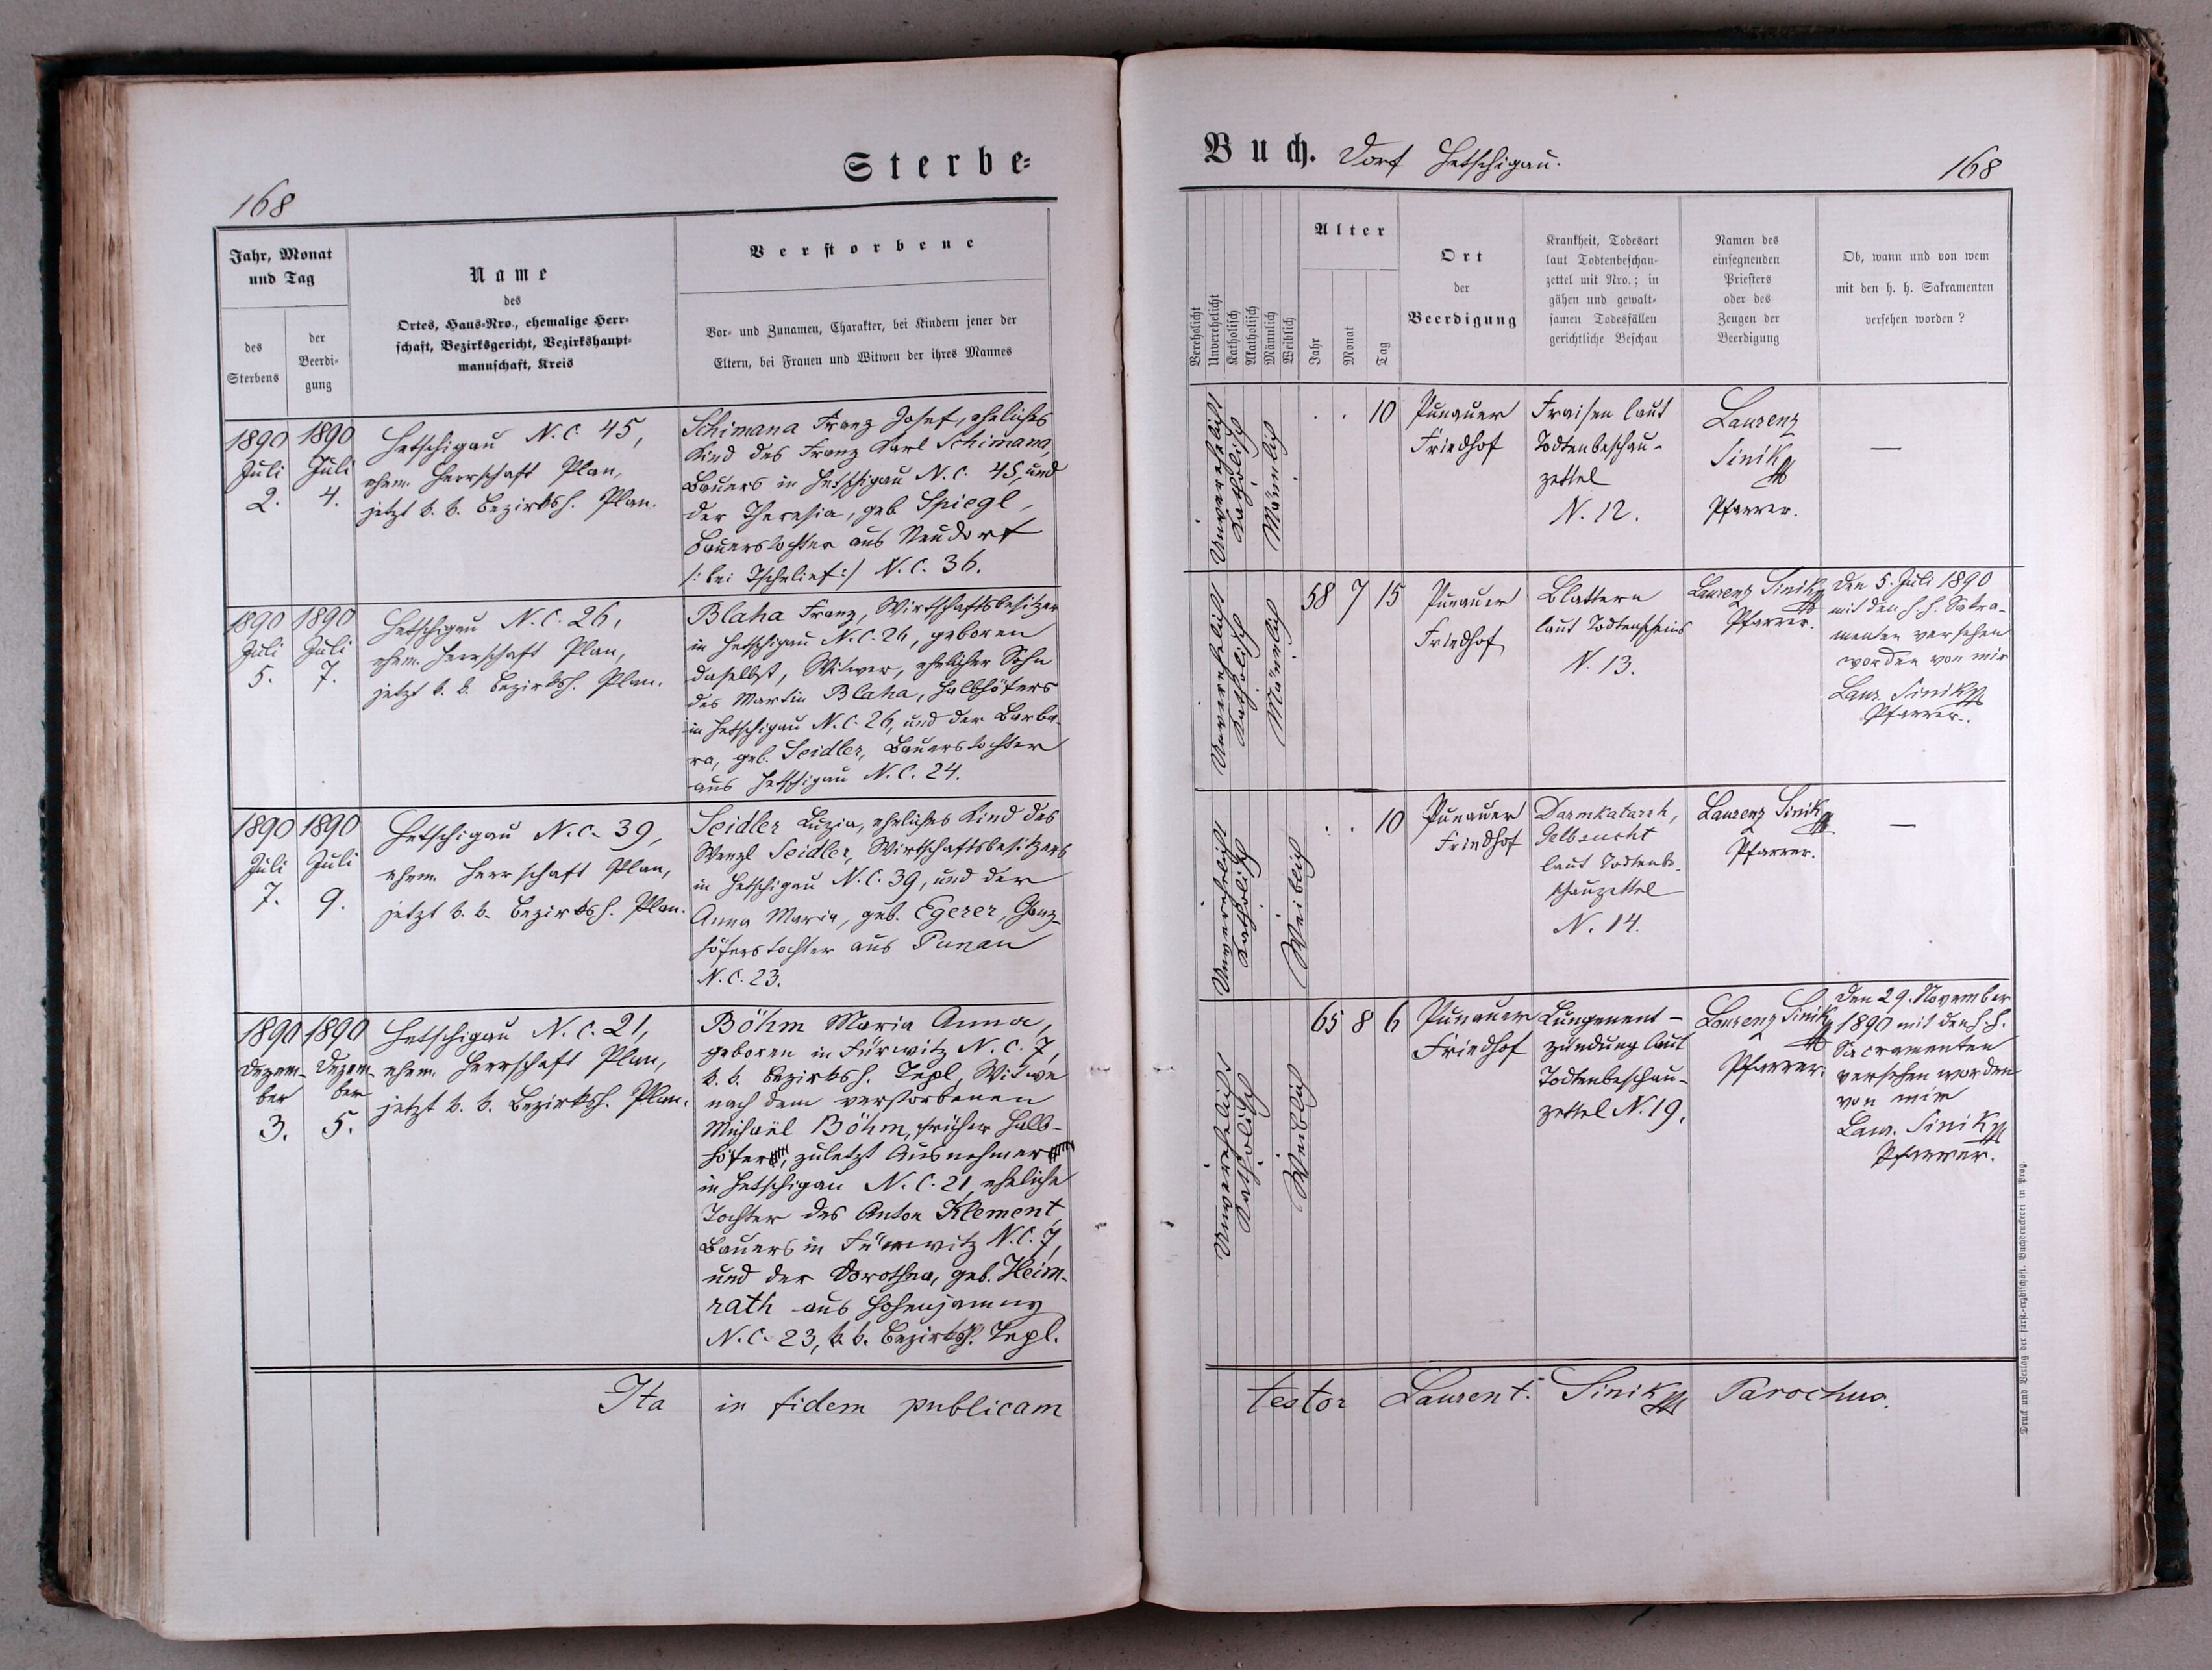 Sterbe=
168
Jahr, Monat
und Tag
des
Sterbens
der
Beerdi-
gung
Name
des
Ortes, Haus-Nro., ehemalige Herr-
schaft, Bezirksgericht, Bezirkshaupt-
mannschaft, Kreis
Verstorbene
Vor- und Zunamen, Charakter, bei Kindern jener der
Eltern, bei Frauen und Witwen der ihres Mannes
1890
Juli
2.
1890
Juli
4.
Hetschigau N.C. 45,
ehem. Herrschaft Plan,
jetzt k. k. Bezirksh. Plan.
Schimana Franz Josef, eheliches
Kind des Franz Karl Schimana,
Bauers in Hetschigau N.C. 45, und
der Theresia, geb Spiegl,
Bauerstochter aus Neudorf
/: bei Tschelief :/ N.C. 36.
1890
Juli
5.
1890
Juli
7.
Hetschigau N.C. 26,
ehem. Herrschaft Plan,
jetzt k. k. Bezirksh. Plan.
Blaha Franz, Wirtschaftsbesitzer
in Hetschigau N.C. 26, geboren
daselbst, Witwer, ehelicher Sohn
des Martin Blaha, Halbhöfers
in Hetschigau N.C. 26, und der Barba-
ra, geb. Seidler, Bauerstochter
aus Hetschigau N.C. 24.
1890
Juli
7.
1890
Juli
9.
Hetschigau N.C. 39,
ehem. Herrschaft Plan,
jetzt k. k. Bezirksh. Plan.
Seidler Luzia, eheliches Kind des
Wenzl Seidler, Wirtschaftsbesitzers
in Hetschigau N.C. 39, und der
Anna Maria, geb. Egerer, Ganz-
höferstochter aus Punau
N.C. 23.
1890
Dezem-
ber
3.
1890
Dezem-
ber
5.
Hetschigau N.C. 21,
ehem. Herrschaft Plan,
jetzt k. k. Bezirksh. Plan.
Böhm Maria Anna,
geboren in Fürwitz N.C. 7,
k. k. Bezirksh. Tepl, Witwe
nach dem verstorbenen
Michaël Böhm, früher Halb-
höfer, zuletzt Ausnehmer
in Hetschigau N.C. 21, eheliche
Tochter des Anton Klement,
Bauers in Fürwitz N.C. 7,
und der Dorothea, geb. Heim-
rath aus Hohenjamny
N.C. 23, k. k. Bezirksh. Tepl.
Ita in fidem publicam
Buch. Dorf Hetschigau.
168
Verehelicht
Unverehelicht
Katholisch
Akatholisch
Männlich
Weiblich
Alter
Jahr
Monat
Tag
Ort
der
Beerdigung
Krankheit, Todesart
laut Todtenbeschau-
zettel mit Nro.; in
gähen und gewalt-
samen Todesfällen
gerichtliche Beschau
Namen des
einsegnenden
Priesters
oder des
Zeugen der
Beerdigung
Ob, wann und von wem
mit den h. h. Sakramenten
versehen worden?
Unverehelicht
Katholisch
Männlich
. . 10
Punauer
Friedhof
Fraisen laut
Todtenbeschau-
zettel
N. 12.
Laurenz
Sinik
Pfarrer.
—
Unverehelicht
Katholisch
Männlich
58 7 15
Punauer
Friedhof
Blattern
laut Todtenscheins
N. 13.
Laurenz Sinik
Pfarrer.
Den 5. Juli 1890
mit den h. h. Sakra-
menten versehen
worden von mir
Laur. Sinik
Pfarrer.
Unverehelicht
Katholisch
Weiblich
. . 10
Punauer
Friedhof
Darmkatarrh,
Gelbsucht
laut Todtenbe-
schauzettel
N. 14.
Laurenz Sinik
Pfarrer.
—
Unverehelicht
Katholisch
Weiblich
65 8 6
Punauer
Friedhof
Lungenent-
zündung laut
Todtenbeschau-
zettel N. 19.
Laurenz Sinik
Pfarrer.
Den 29. November
1890 mit den h. h.
Sacramenten
versehen worden
von mir
Laur. Sinik
Pfarrer.
testor Laurent. Sinik Parochus.
Druck und Verlag der fürst-erzbischöfl. Buchdruckerei in Prag.